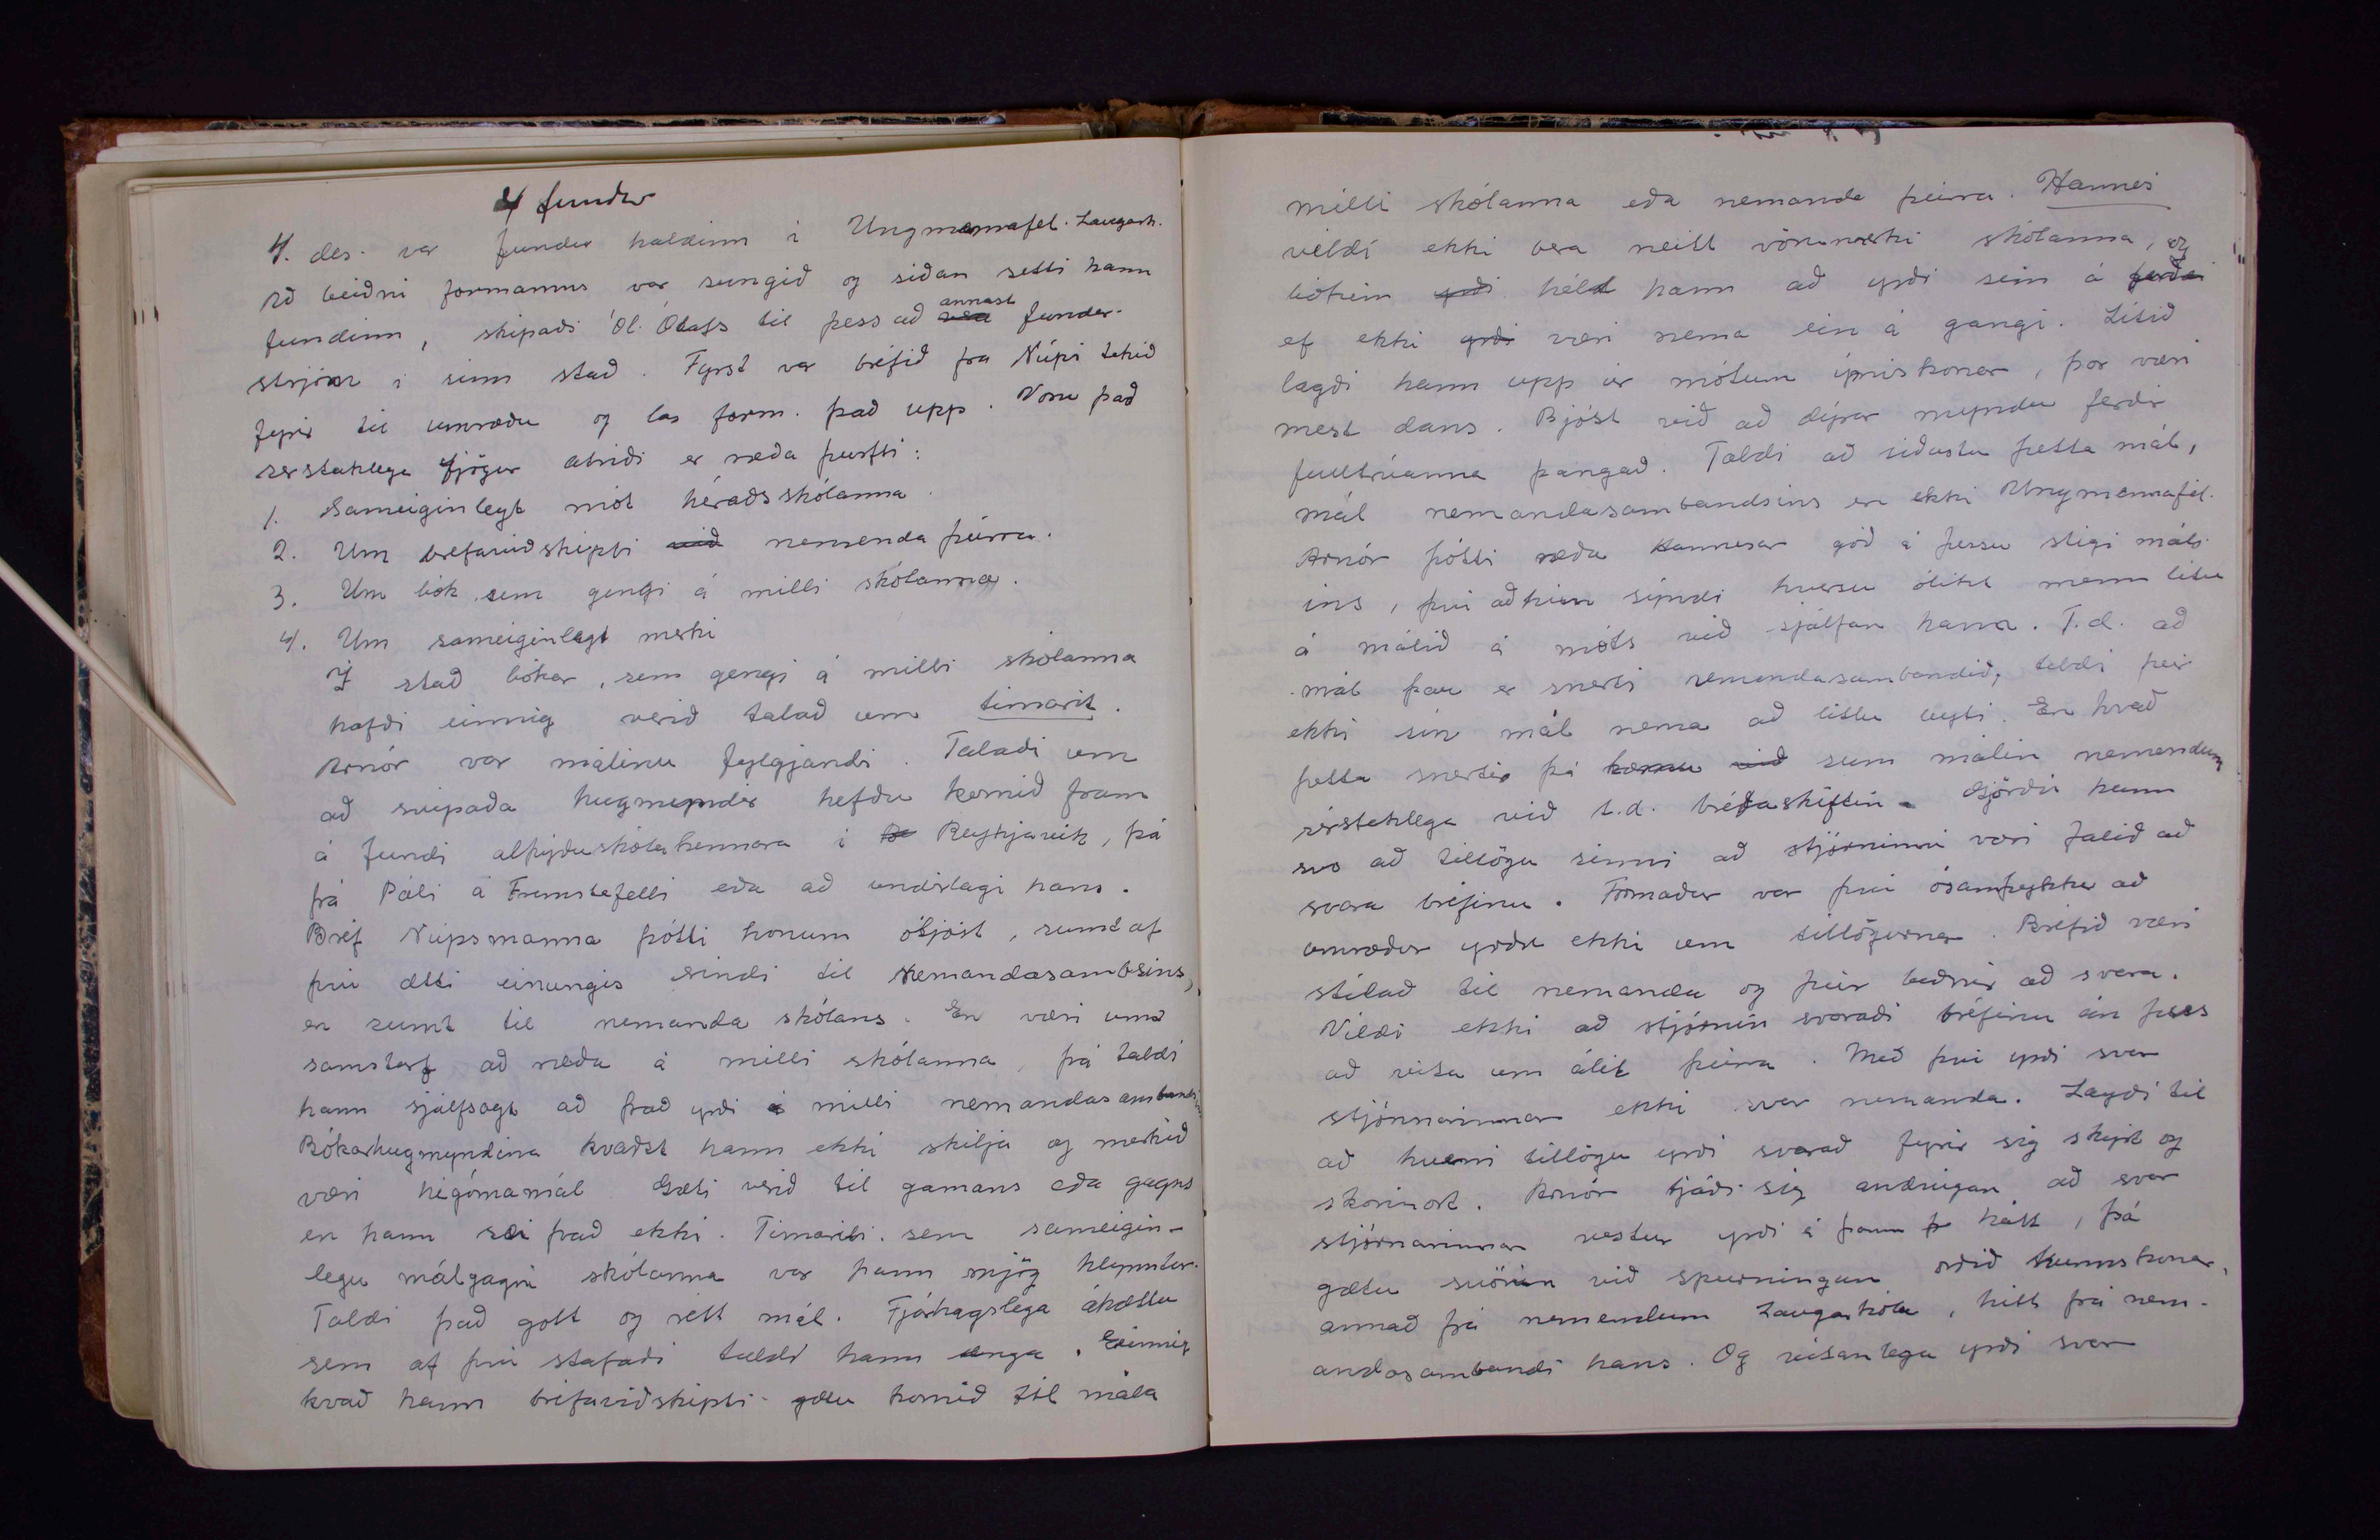 4 fundur
4. des. var fundur haldinn í Ungmannafel. Laugask.
Að beiðni formanns var sungið og siðan setti hann
fundinn, skipaði Ól. Ólafs til þess að annast fundar-
stjórn i sinn stað. Fyrst var bréfið fra Núpi tekið
fyrir til umræðu og las form. það upp. Voru það
serstaklega fjögur atriði er ræða þurfti:
1. Sameiginlegt mót héraðsskólanna.
2. Um brefaviðskipti við nemenda þeirra.
3. Um bók sem gengi á milli skólanna.
4. Um sameiginlegt merki
Í stað bókar, sem gengi á milli skólanna
hafði einnig verið talað um timarit.
Arnór var málinu fylgjandi. Talaði um
að svipaða hugmyndir hefðu komið fram
á fundi alþýðuskólakennara i Re Reykjavik, þá
frá Páli á Fremstafelli eða að undirlagi hans.
Bréf Núpsmanna þótti honum óljóst, sumt af
þvi ætti einungis erindi til Nemandasambsins,
en sumt til nemanda skólans. En væri um
samstarf að ræða á milli skólanna, þá taldi
hann sjálfsagt að það yrði á milli nemandasamband
Bókarhugmyndina kvaðst hann ekki skilja og merkið
væri hégómamál. Gæti verið til gamans eða gagns
en hann sæi það ekki. Timariti sem sameigin-
legu málgagni skólanna var hann mjög hlynntur.
Taldi það gott og rétt mál. Fjárhagslega áhættu
sem af þvi stafaði taldi hann enga. Einnig
kvað hann bréfaviðskipti gætu komið til mála
milli skólanna eða nemanda þeirra. Hannes
vildi ekki bera neitt vörumerki skólanna, og
bókin yrði hélt hann að yrði sein á ferðai
ef ekki yrði væri nema ein á gangi. Litið
lagði hann upp úr mótum ýmiskonar, þar væri
mest dans. Bjóst við að dýrar myndu ferðir
fulltrúanna þangað. Taldi að siðustu þetta mál,
mál nemandasambandsins en ekki Ungmennafél.
Arnór þótti ræða Hannesar góð á þessu stigi máls-
ins, þvi að hún sýndi hversu ólikt menn litu
á málið á móts við sjálfan hann. T.d. að
mál þau er snerti nemendasambandið, taldi þeir
ekki sin mál nema að litlu leyti. En hvað
þetta snertir þá komu við sum málin nemendum
sérstaklega við t.d. bréfaskiftin. Gjörði hann
svo að tillögu sinni að stjórninni væri falið að
svara bréfinu. Formaður var þvi ósamþykkur að
umræður yrðu ekki um tillögurnar. Bréfið væri
stilað til nemanda og þeir beðnir að svara.
Vildi ekki að stjórnin svaraði bréfinu án þess
að vita um álit þeirra. Með þvi yrði svar
stjórnarinnar ekki svar nemanda. Lagði til
að hverri tillögu yrði svarað fyrir sig skýrt og
skorinort. Arnór tjáði sig andvigan að svar
stjórnarinnar vestur yrði á þann þ hátt, þá
gætu svörin við spurningum orðið tvennskonar,
annað frá nemendum Laugaskóla, hitt frá nem-
andasambandi hans. Og visanlega yrði svar